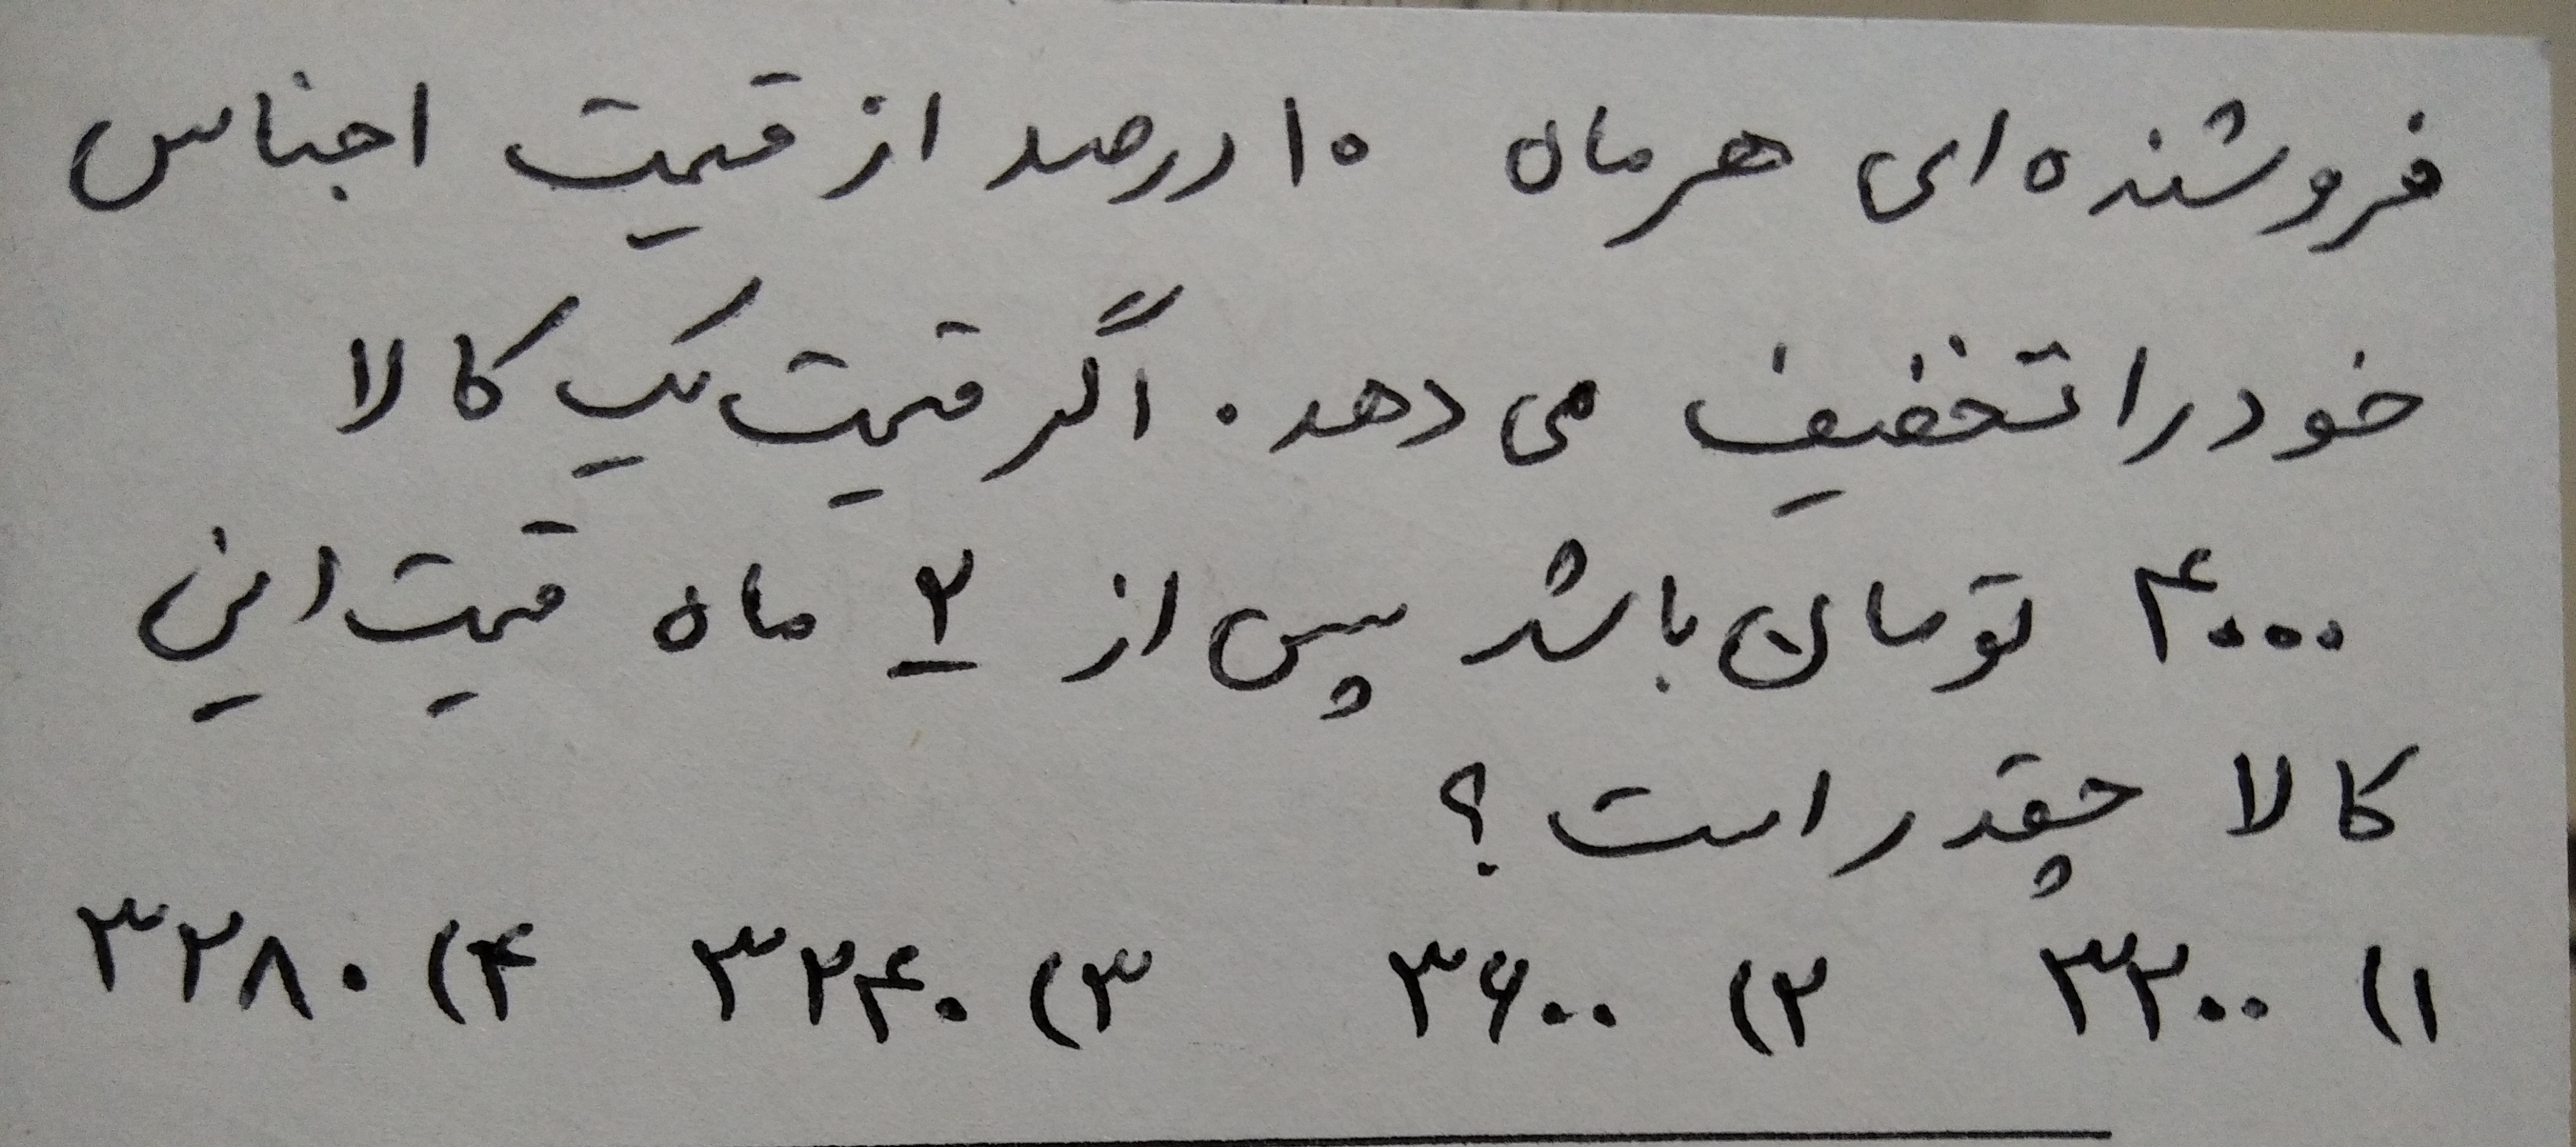 فروشنده ای هر ماه ۱۰ درصد از قیمت اجناس
خود را تخفیف می دهد. اگر قیمت یک کالا
۴۰۰۰ تومان باشد پس از ۲ ماه قیمت این
کالا چقدر است؟
۱) ۳۲۰۰ ۲) ۳۶۰۰ ۳) ۳۲۴۰ ۴) ۳۲۸۰